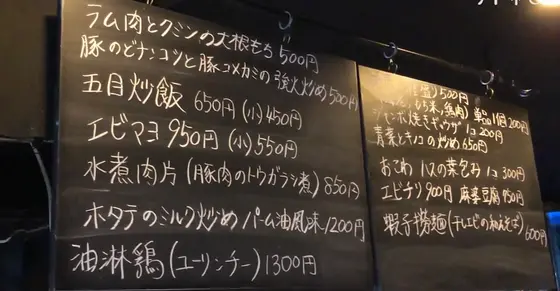 ラム肉とクミンの大根もち 500円
豚のどナンコツと豚コメカミの強火炒め 500円
五目炒飯 650円 (小)450円
エビマヨ 950円 (小)550円
水煮肉片 (豚肉のトウガラシ煮) 850円
ホタテのミルク炒め パーム油風味 1200円
油淋鶏 (ユーリンチー) 1300円
盛) 500円
もち米、鶏肉) 1個 200円
ジャンボ焼きギョウザ 1コ 200円
青菜とキノコの炒め 650円
おこわ ハスの葉包み 1コ 300円
エビチリ 900円 麻婆豆腐 950円
蝦子撈麺 (干しエビの和えそば) 600円